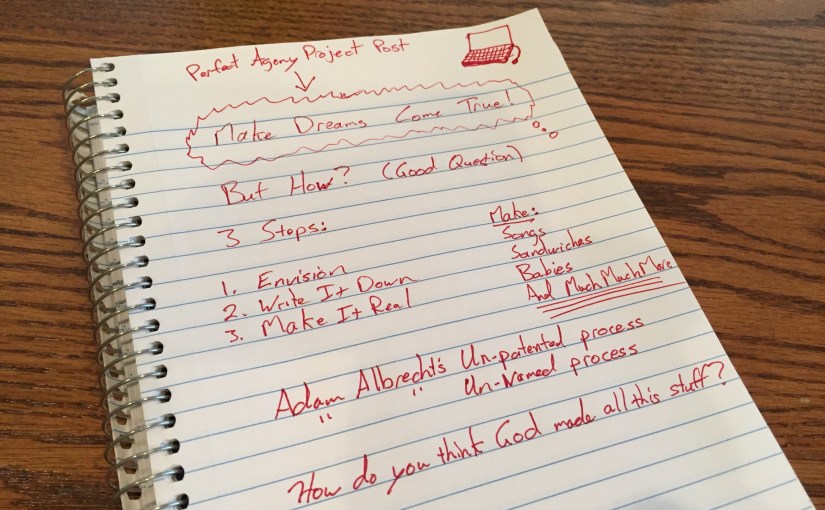 Perfect Agency Project Post
Make Dreams Come True!
But How? (Good Question)
3 Steps:
1. Envision
2. Write It Down
3. Make It Real
Make:
Songs
Sandwiches
Babies
And Much Much More
Adam Albrecht's Un-patented process
" " Un-Named process
How do you think God made all this stuff?